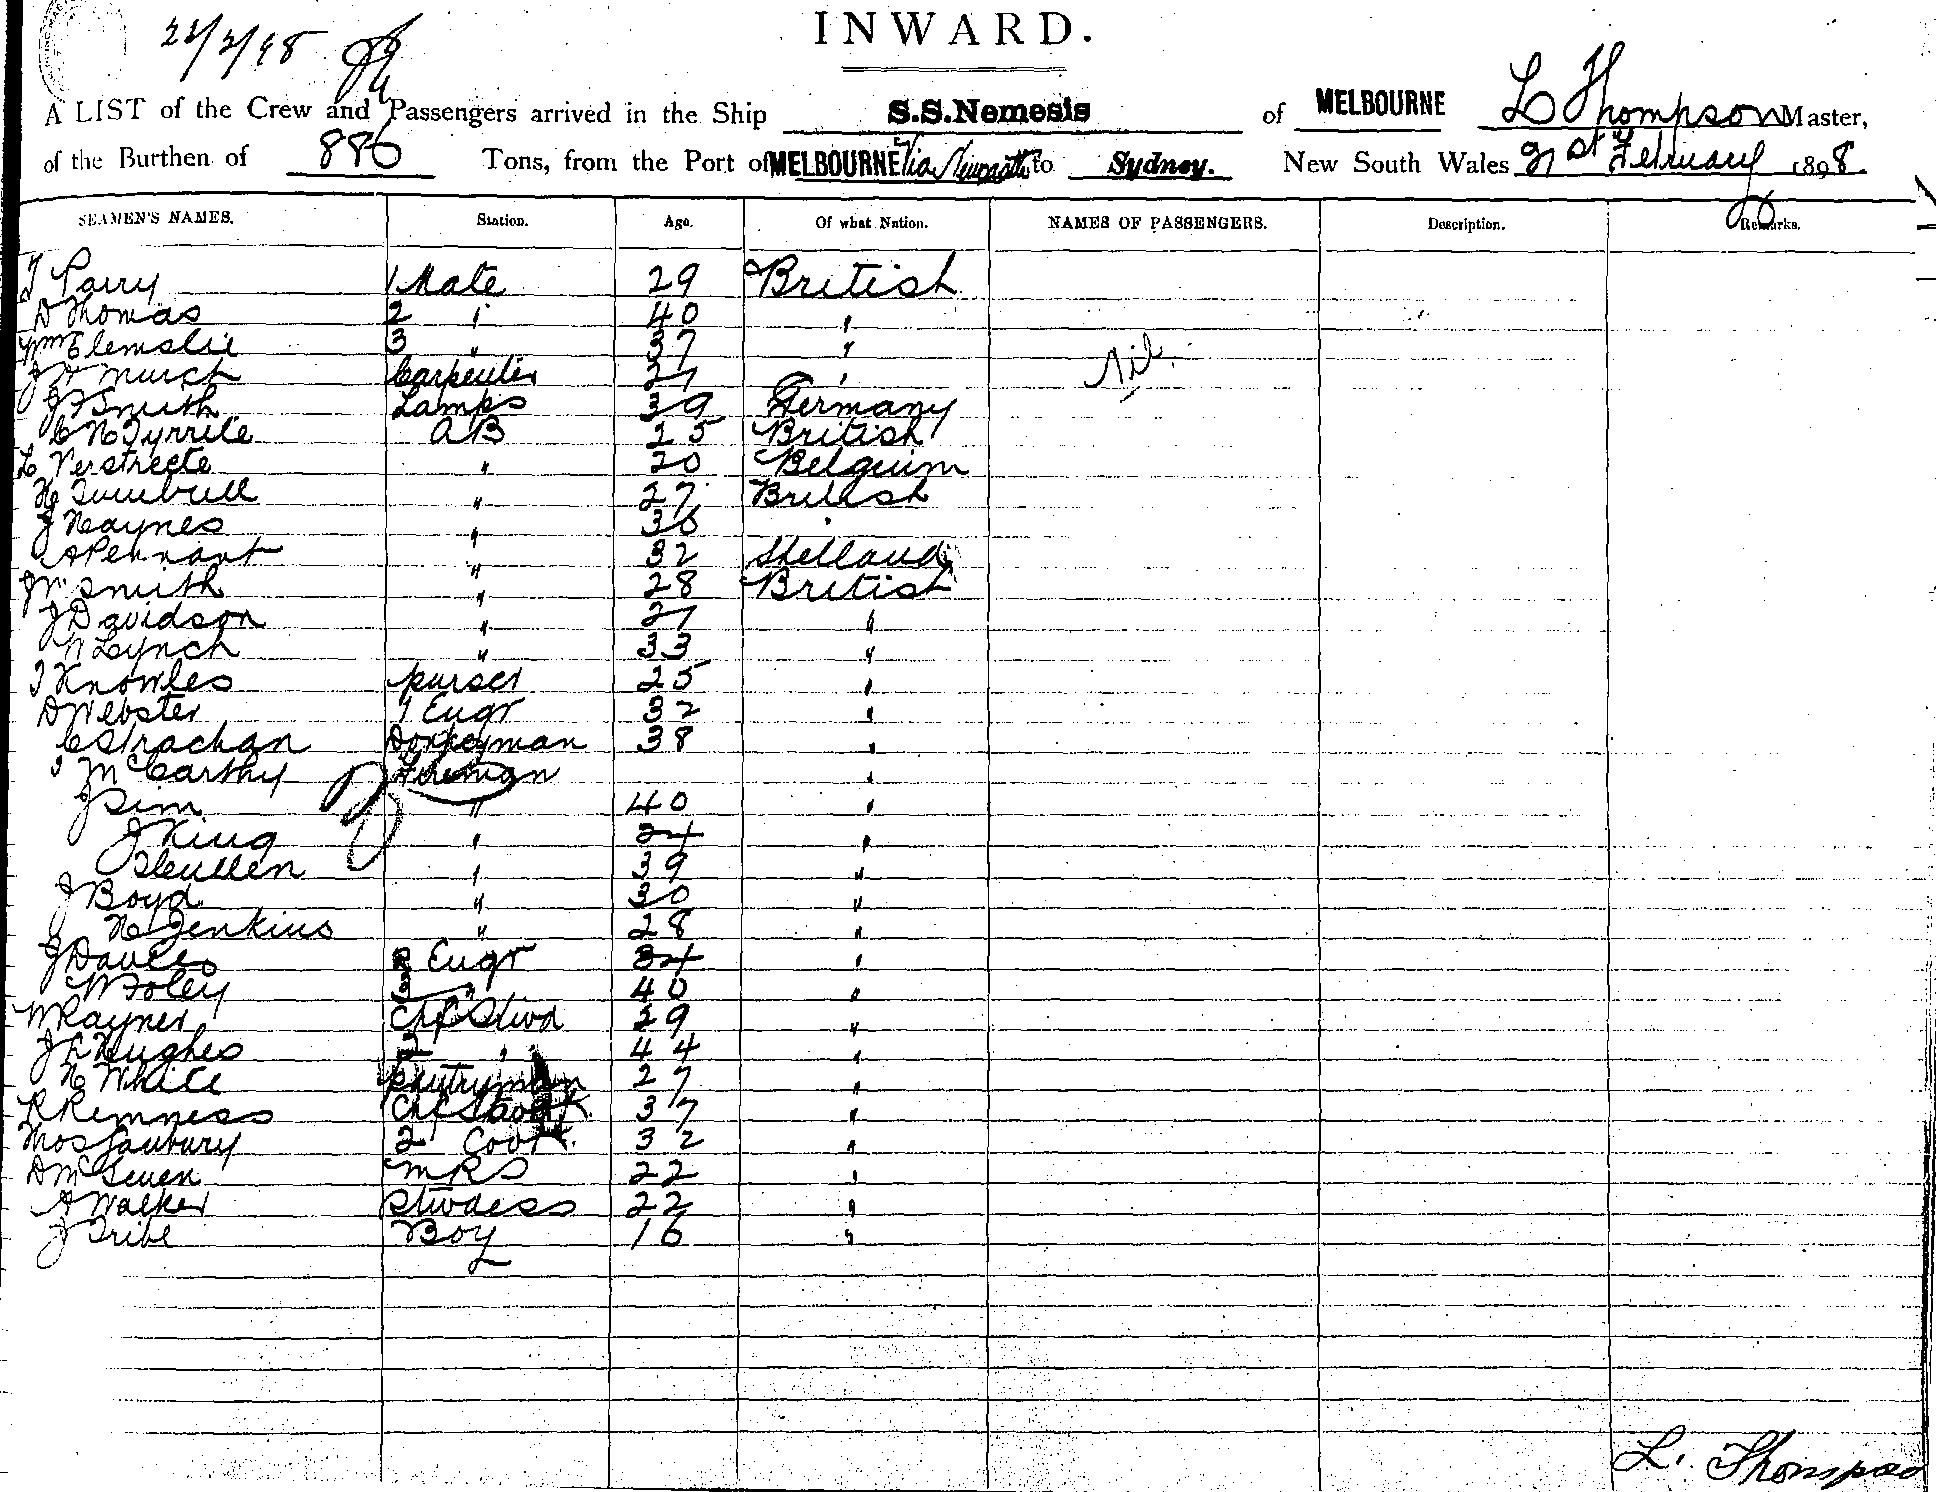 22/2/98
INWARD.
A LIST of the Crew and Passengers arrived in the Ship S.S.Nemesis of MELBOURNE L Thompson Master,
of the Burthen of 886 Tons, from the Port of MELBOURNE Via Newcastle to Sydney. New South Wales 21st February 1898.
SEAMEN'S NAMES. Station. Age. Of what Nation. NAMES OF PASSENGERS. Description. Remarks.
T Parry 1 Mate 29 British
D Thomas 2 " 40 "
Wm Elemslie 3 " 37 "
J H Murch Carpenter 27 " Nil
J F Smith Lamps 39 Germany
C N Tyrrile AB 25 British
L Verstrecte " 20 Belguim
H Turnbull " 27 British
J Haynes " 36 "
A Pennant " 32 Shetland
J W Smith " 28 British
J Davidson " 27 "
W Lynch " 33 "
T Knowles purser 25 "
D Webster 1 Engr 32 "
C Strachan Donkeyman 38 "
J McCarthy Fireman "
J Sim " 40 "
J King " 24 "
P Cullen " 39 "
J Boyd " 30 "
H Jenkins " 28 "
J Davies 2 Engr 34 "
C W Foley 3 " 40 "
W Rayner Chf Stwd 29 "
J L Hughes 2 " 44 "
H White pantryman 27 "
R Remness Chf Cook 37 "
Thos Sanbury 2 Cook 32 "
D McEwen MRS 22 "
A Walker Stwdess 22 "
J Tribe Boy 16 "
L. Thompson